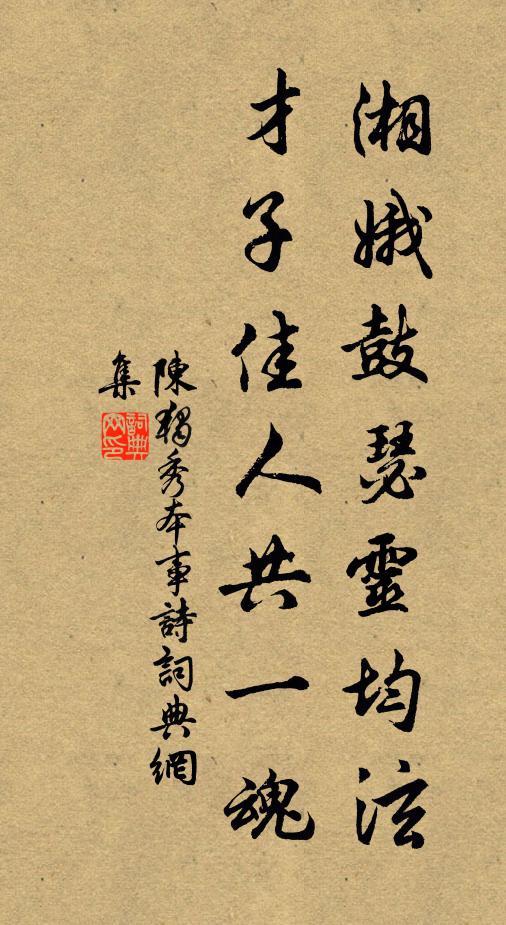 湘娥鼓瑟靈均泫
才子佳人共一魂
陳獨秀本事詩詞典網
集
詞典
網印